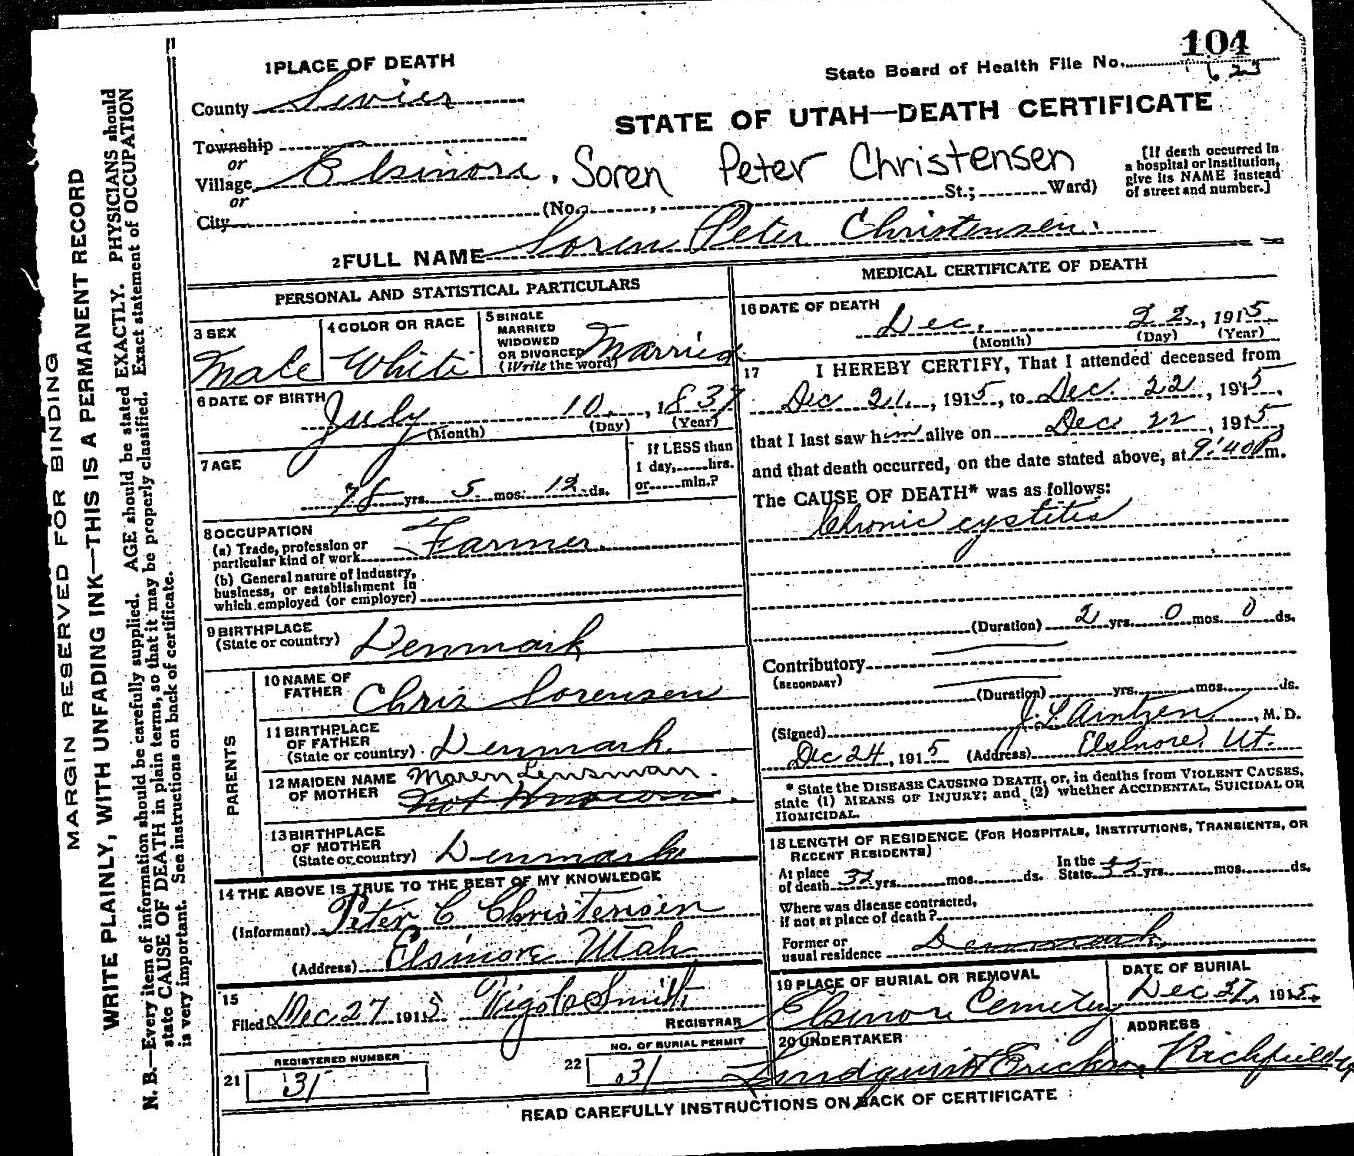 104
State Board of Health File No.
1 PLACE OF DEATH
County Sevier
STATE OF UTAH—DEATH CERTIFICATE
Township
or
Village Elsinore. Soren Peter Christensen
or
City (No. , St.; Ward)
[If death occurred in
a hospital or institution,
give its NAME instead
of street and number.]
2 FULL NAME Soren Peter Christensen.
PERSONAL AND STATISTICAL PARTICULARS
3 SEX
Male
4 COLOR OR RACE
White
5 SINGLE
MARRIED
WIDOWED
OR DIVORCED
(Write the word)
Married
6 DATE OF BIRTH
July 10, 1837
(Month) (Day) (Year)
7 AGE
78 yrs. 5 mos. 12 ds.
If LESS than
1 day, hrs.
or min.?
8 OCCUPATION
(a) Trade, profession or
particular kind of work Farmer
(b) General nature of industry,
business, or establishment in
which employed (or employer)
9 BIRTHPLACE
(State or country) Denmark
PARENTS
10 NAME OF
FATHER Chris Sorensen
11 BIRTHPLACE
OF FATHER
(State or country) Denmark
12 MAIDEN NAME
OF MOTHER Maren Lensman.
Not Known
13 BIRTHPLACE
OF MOTHER
(State or country) Denmark
14 THE ABOVE IS TRUE TO THE BEST OF MY KNOWLEDGE
(Informant) Peter C Christensen
(Address) Elsinore Utah
15
Filed Dec 27 1915 Smith
REGISTRAR
REGISTERED NUMBER
21 31
NO. OF BURIAL PERMIT
22 31
MEDICAL CERTIFICATE OF DEATH
16 DATE OF DEATH
Dec. 22, 1915
(Month) (Day) (Year)
17 I HEREBY CERTIFY, That I attended deceased from
Dec 21, 1915, to Dec. 22, 1915,
that I last saw him alive on Dec 22, 1915,
and that death occurred, on the date stated above, at 9:40 P m.
The CAUSE OF DEATH* was as follows:
Chronic cystites
(Duration) 2 yrs. 0 mos. 0 ds.
Contributory
(SECONDARY)
(Duration) yrs. mos. ds.
(Signed) , M. D.
Dec 24, 1915 (Address) Elsinore, Ut.
* State the DISEASE CAUSING DEATH, or, in deaths from VIOLENT CAUSES,
state (1) MEANS OF INJURY; and (2) whether ACCIDENTAL, SUICIDAL OR
HOMICIDAL.
18 LENGTH OF RESIDENCE (FOR HOSPITALS, INSTITUTIONS, TRANSIENTS, OR
RECENT RESIDENTS)
At place
of death 32 yrs. mos. ds. In the
State 32 yrs. mos. ds.
Where was disease contracted,
if not at place of death?
Former or
usual residence Denmark
19 PLACE OF BURIAL OR REMOVAL
Elsinore Cemetery
DATE OF BURIAL
Dec 27, 1915.
20 UNDERTAKER
ADDRESS
Richfield
READ CAREFULLY INSTRUCTIONS ON BACK OF CERTIFICATE
MARGIN RESERVED FOR BINDING
WRITE PLAINLY, WITH UNFADING INK—THIS IS A PERMANENT RECORD
N. B.—Every item of information should be carefully supplied. AGE should be stated EXACTLY. PHYSICIANS should
state CAUSE OF DEATH in plain terms, so that it may be properly classified. Exact statement of OCCUPATION
is very important. See instructions on back of certificate.